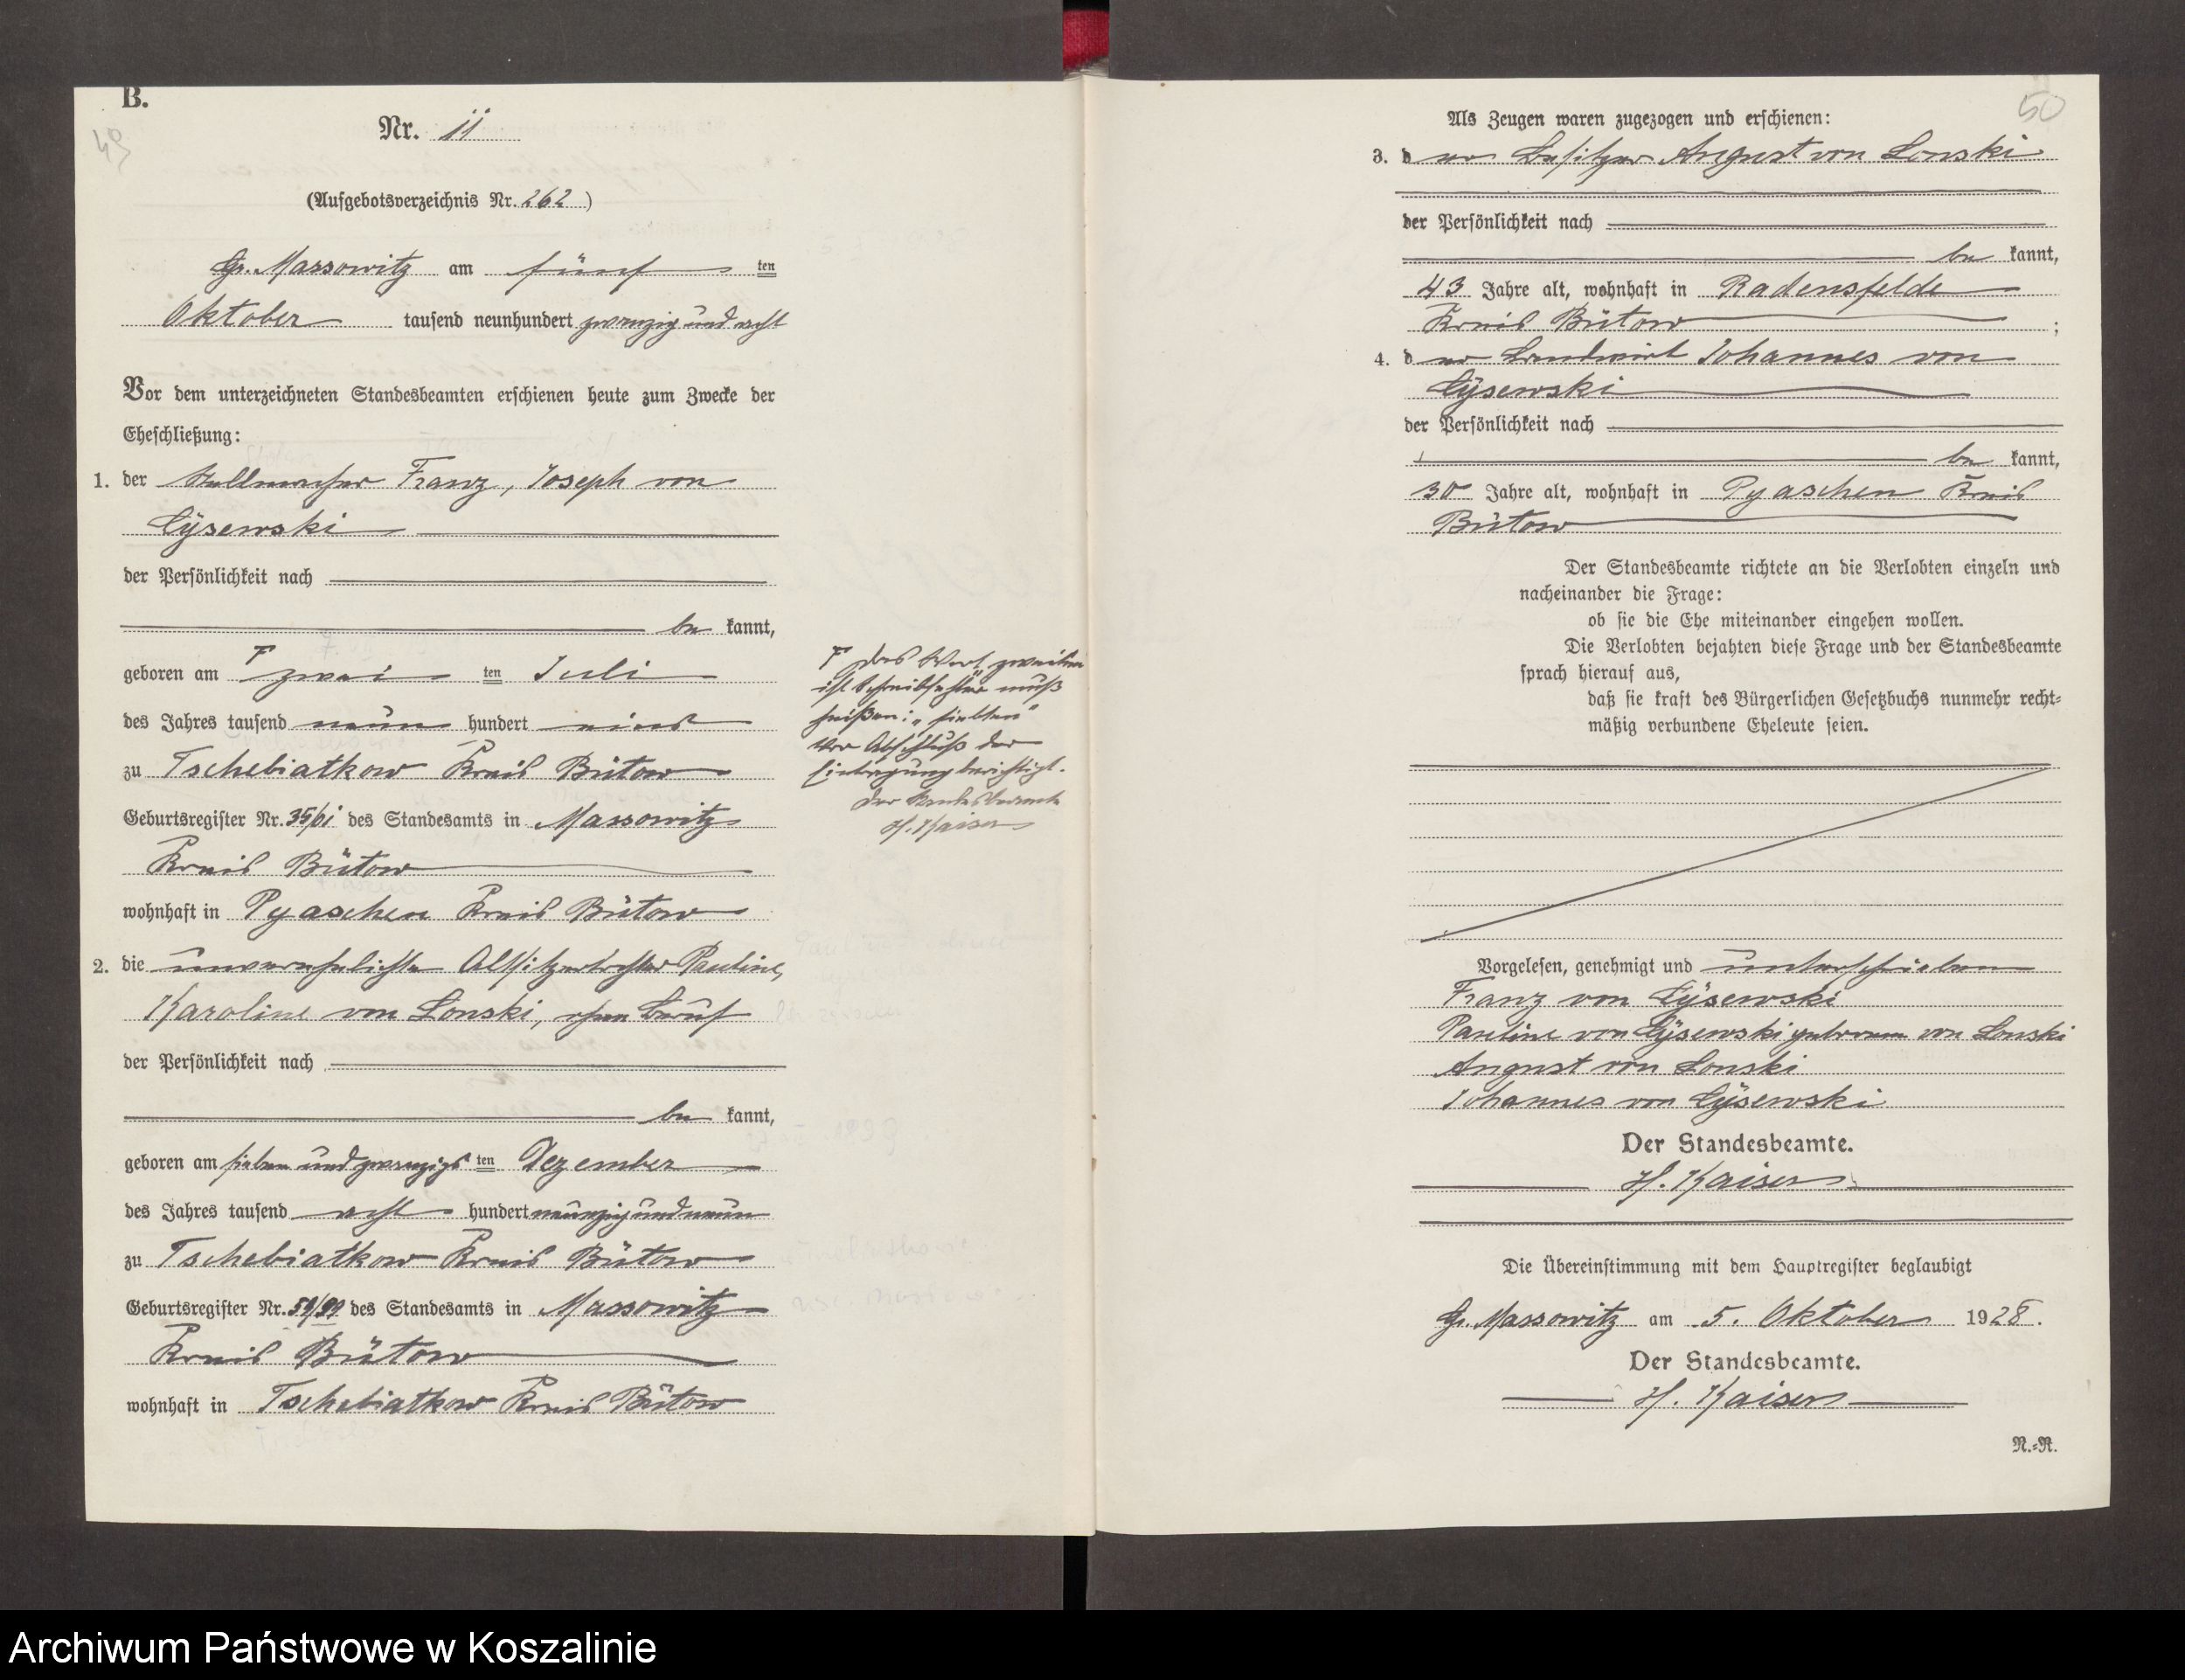 B.
49
Nr. 11
(Aufgebotsverzeichnis Nr. 262)
Gr. Massowitz am fünf ten
Oktober tausend neunhundert zwanzig und acht
Vor dem unterzeichneten Standesbeamten erschienen heute zum Zwecke der
Eheschließung:
1. der Stellmacher Franz, Joseph von
Cÿsewski
der Persönlichkeit nach
be kannt,
geboren am zwei ten Juli
des Jahres tausend neun hundert eins
zu Tschebiatkow Kreis Bütow
Geburtsregister Nr. 35/01 des Standesamts in Massowitz
Kreis Bütow
wohnhaft in Pyaschen Kreis Bütow
2. die unverehelichte Altsitzertochter Pauline,
Karoline von Lonski, ohne Beruf
der Persönlichkeit nach
be kannt,
geboren am sieben und zwanzigs ten Dezember
des Jahres tausend acht hundert neunzig und neun
zu Tschebiatkow Kreis Bütow
Geburtsregister Nr. 59/99 des Standesamts in Massowitz
Kreis Bütow
wohnhaft in Tschebiatkow Kreis Bütow
Γ Das Wort „zweiten
ist Schreibfehler muß
heißen: „siebten"
Vor Abschluß der
Eintragung berichtigt.
Der Standesbeamte
H. Kaiser
50
Als Zeugen waren zugezogen und erschienen:
3. d er Besitzer August von Lonski
der Persönlichkeit nach
be kannt,
43 Jahre alt, wohnhaft in Radensfelde
Kreis Bütow ;
4. d er Landwirt Johannes von
Cÿsewski
der Persönlichkeit nach
be kannt,
30 Jahre alt, wohnhaft in Pyaschen Kreis
Bütow
Der Standesbeamte richtete an die Verlobten einzeln und
nacheinander die Frage:
ob sie die Ehe miteinander eingehen wollen.
Die Verlobten bejahten diese Frage und der Standesbeamte
sprach hierauf aus,
daß sie kraft des Bürgerlichen Gesetzbuchs nunmehr recht-
mäßig verbundene Eheleute seien.
Vorgelesen, genehmigt und unterschrieben
Franz von Cÿsewski
Pauline von Cÿsewski geborene von Lonski
August von Lonski
Johannes von Cÿsewski
Der Standesbeamte.
H. Kaiser
Die Übereinstimmung mit dem Hauptregister beglaubigt
Gr. Massowitz am 5. Oktober 1928.
Der Standesbeamte.
H. Kaiser
N.-R.
Archiwum Państwowe w Koszalinie